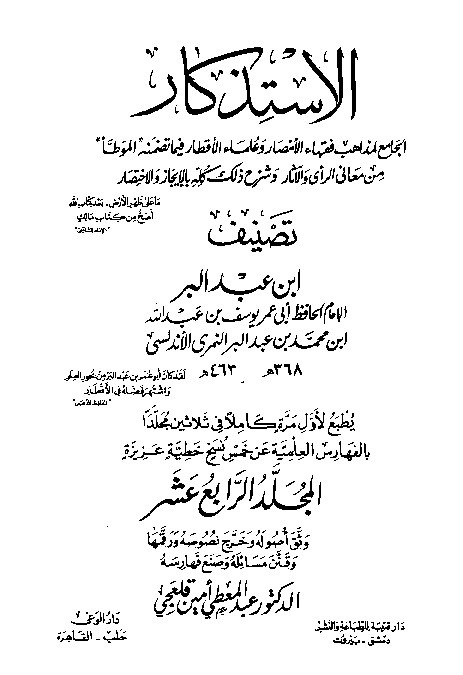 الاستذكار
الجامع لمذاهب فقهاء الأمصار وعلماء الأقطار فيما تضمنه "الموطأ"
من معاني الرأي والآثار وشرح ذلك كله بالإيجاز والاختصار
ما على ظهر الأرض - بعد كتاب الله
أصح من كتاب مالك
"الإمام الشافعي"
تصنيف
ابن عبد البر
الإمام الحافظ أبي عمر يوسف بن عبد الله
ابن محمد بن عبد البر النمري الأندلسي
٣٦٨هـ - ٤٦٣هـ
لقد كان أبو عمر بن عبد البر من بحور العلم
واشتهر فضله في الأقطار
"الحافظ الذهبي"
يُطبع لأول مرة كاملاً في ثلاثين مجلدًا
بالفهارس العلمية عن خمس نسخ خطية عزيزة
المجلد الرابع عشر
وثق أصوله وخرج نصوصه ورقمها
وقنن مسائله وصنع فهارسه
الدكتور عبد المعطي أمين قلعجي
دار قتيبة للطباعة والنشر
دمشق - بيروت
دار الوعي
حلب - القاهرة